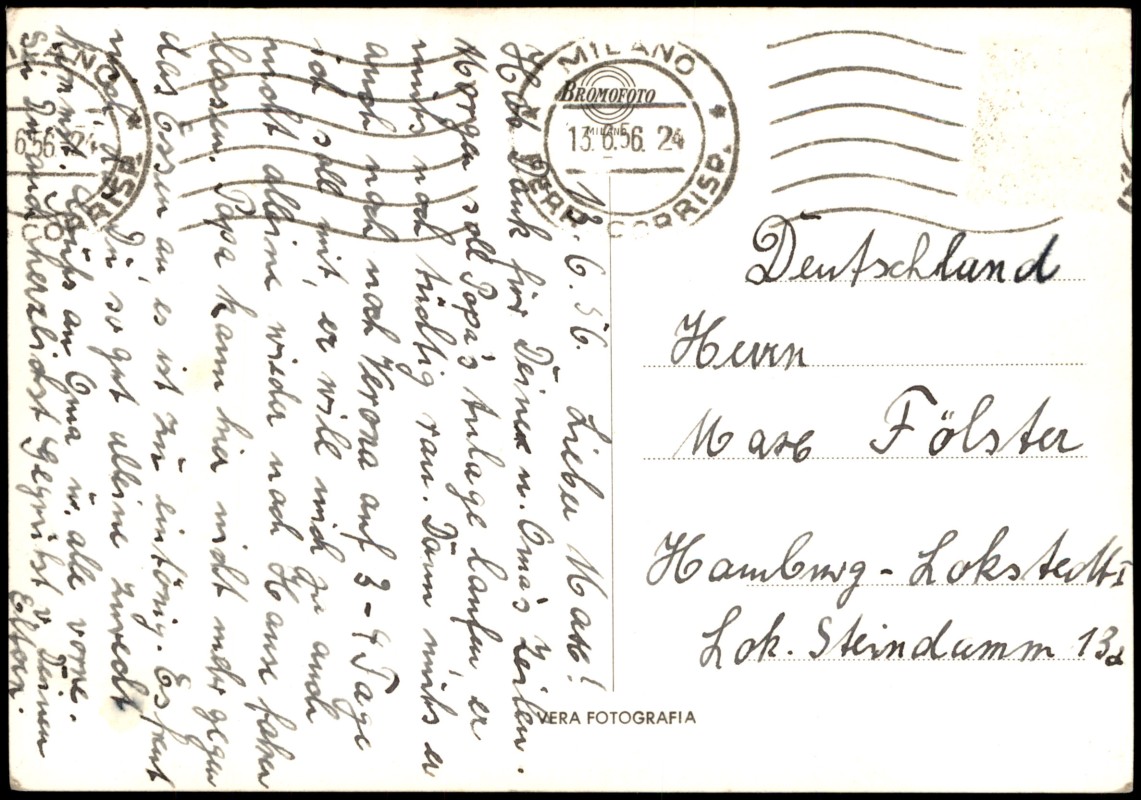 12. 6. 56. Lieber Max!
Hab Dank für Deine u. Oma's Zeilen.
Morgen soll Papa's Anlage laufen, er
muß noch tüchtig ran. Dann muß er
auch noch nach Verona auf 3-4 Tage
ich soll mit, er will mich ja auch
nicht alleine wieder nach Hause fahren
lassen. Papa kann hier nicht mehr gegen
das Essen an, es ist zu eintönig. Es freut
mich, daß Du so gut alleine zurecht
kommst. Grüß an Oma u. alle vorne.
Sei Du auch herzlichst gegrüßt v. Deinen
Eltern.
MILANO
BROMOFOTO
MILANO
13.6.56. 24
FERR. CORRISP.
6.56. 24
RISP.
Deutschland
Herrn
Max Fölster
Hamburg-Lokstedt 1
Lok. Steindamm 13a
VERA FOTOGRAFIA